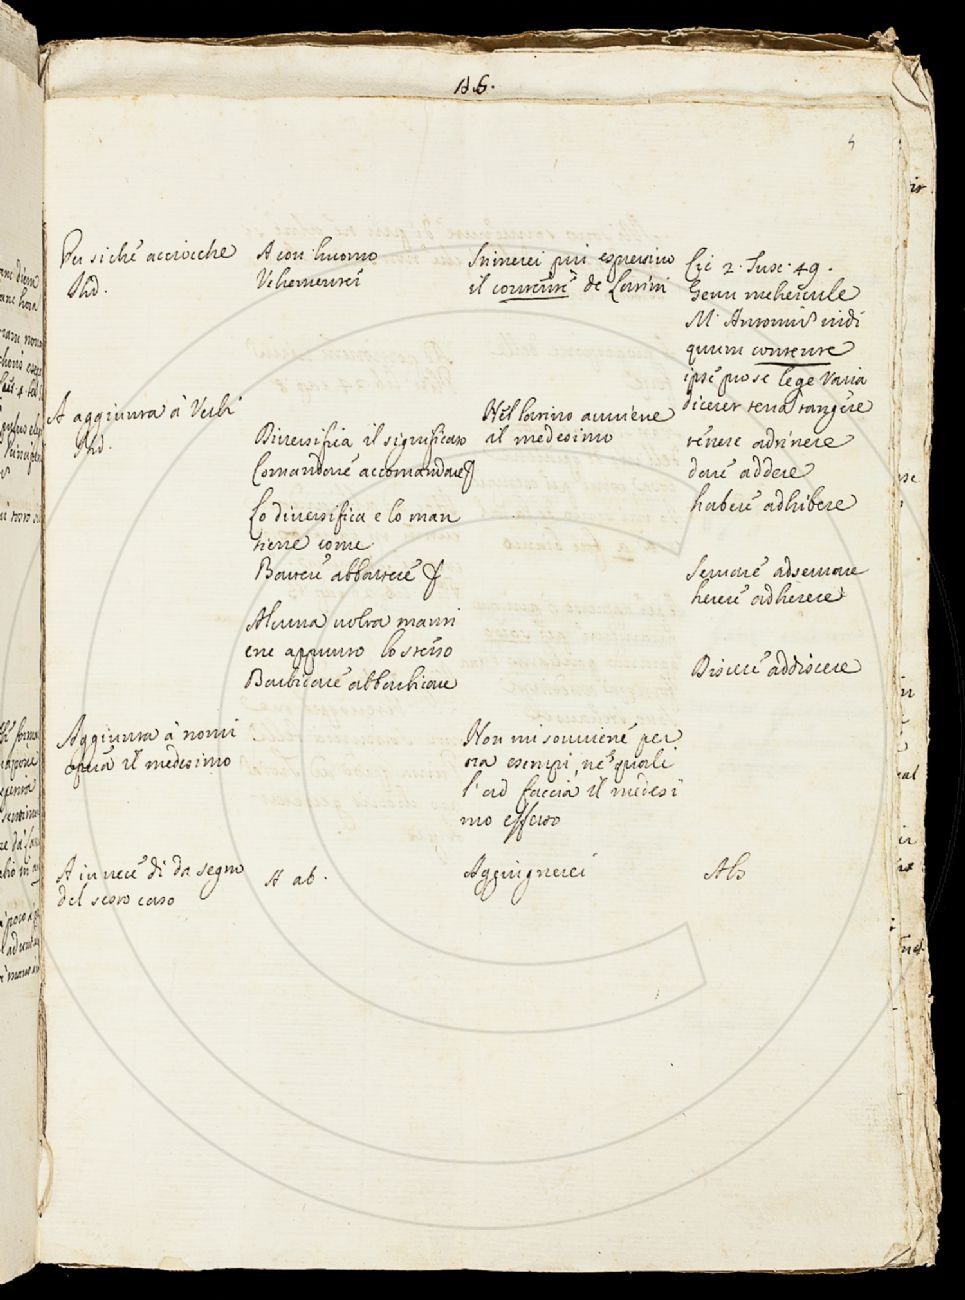 A b.
5
Per siche acciocche
Ibid.
A con huomo
Vehementer
Stimerei piu espressivo
il contente de Latini
Cic 2. Tusc. 49.
Genu mehercule
M. Antonium vidi
quum contente
ipse pro se lege Varia
diceret terra tangere
A aggiunta à Verbi
Ibid.
Diversifica il significato
Comandare accomandare
Lo diversifica e lo man
tiene come
Battere abbattere
Alcuna volta manti
ene appunto lo stesso
Barbicare abbarbicare
Nel latino avviene
il medesimo
tenere adtinere
dare addere
habere adhibere
Servare adservare
herere adherere
Discere addiscere
Aggiunta à nomi
opera il medesimo
Non mi sovviene per
ora esempi, ne' quali
l'ad faccia il medesi
mo effetto
A in vece di da segno
del sesto caso
A ab.
Aggiugnerei
Ab